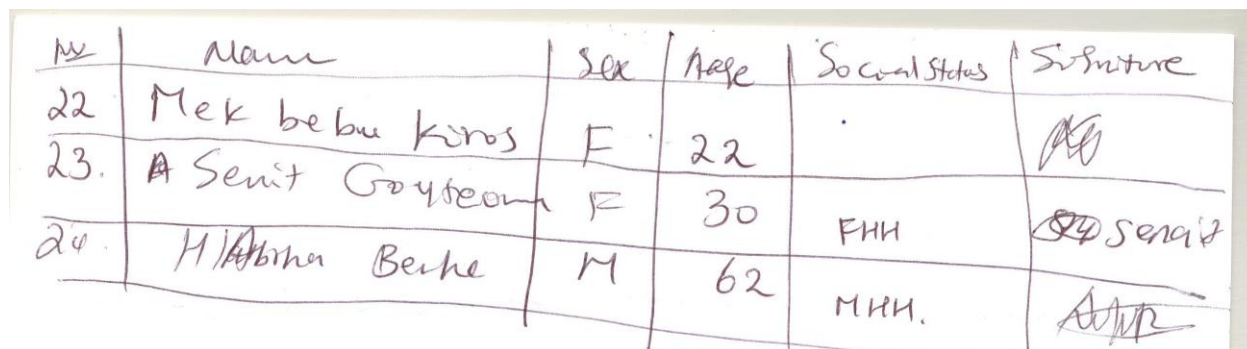 No Name Sex Age Social Status
22 Mek bebu Kiros F 22
23. Senit Goyteom F 30 FHH Senait
24. Berhe M 62 MHH.